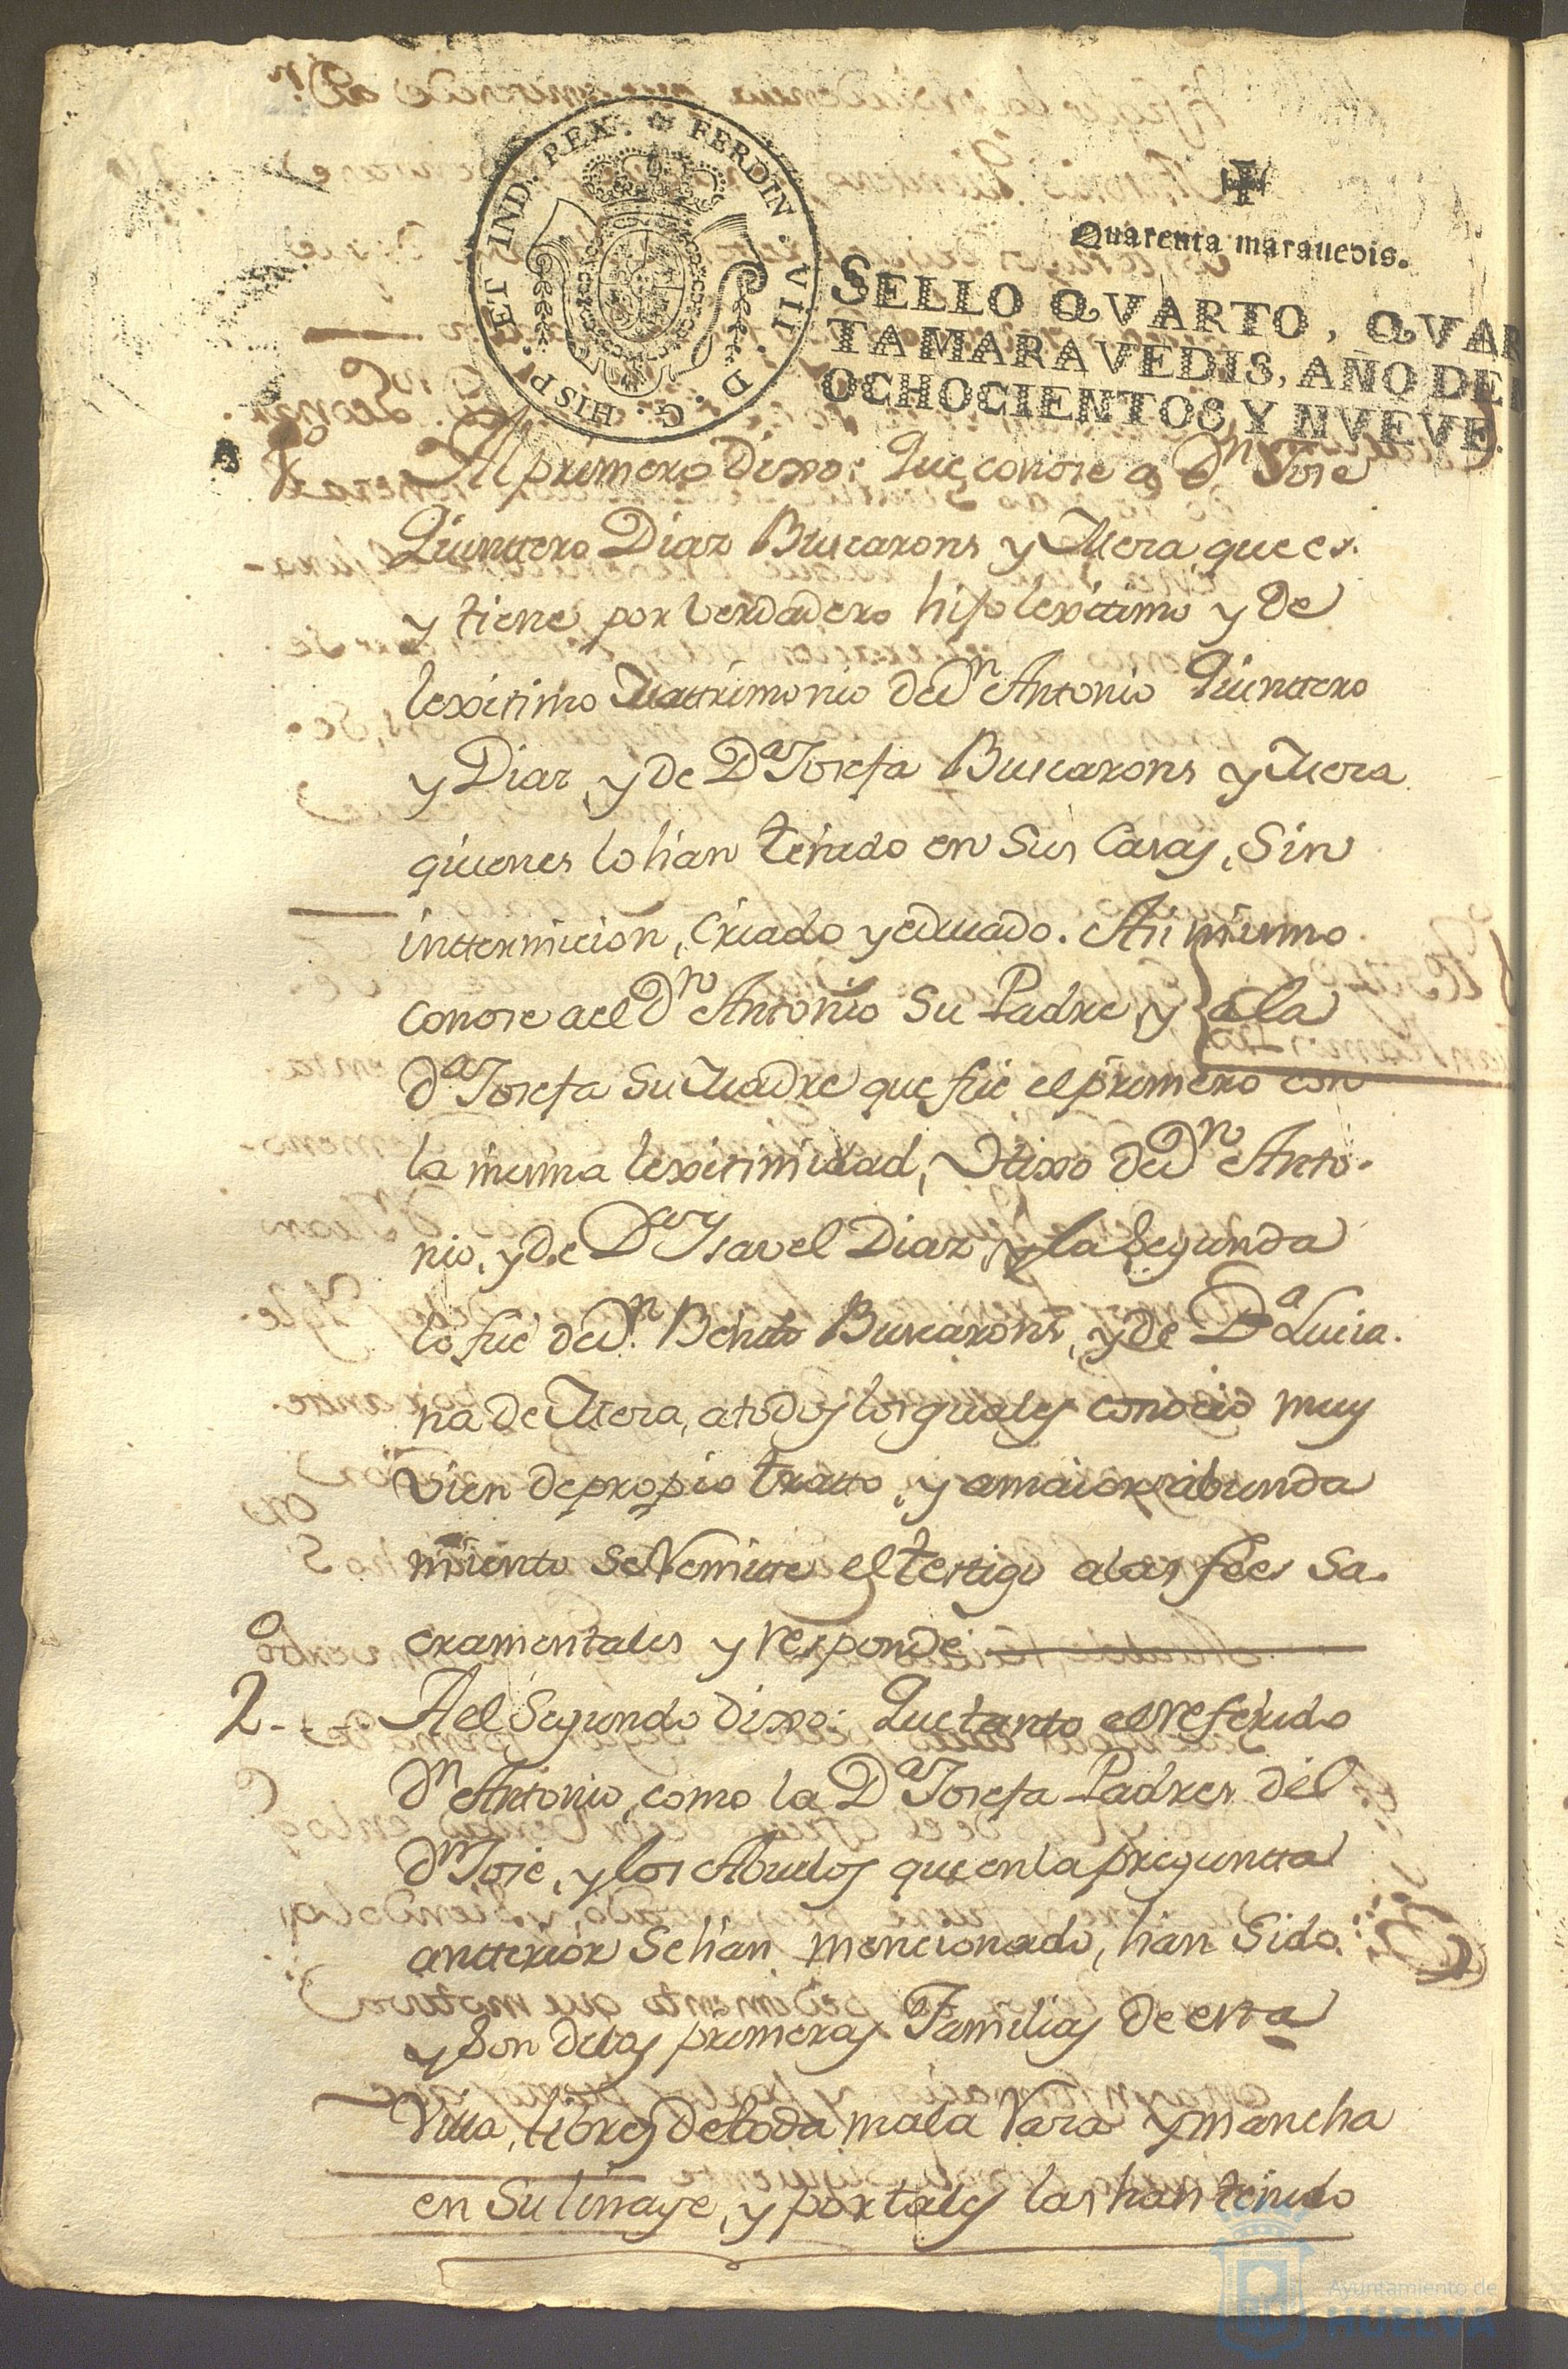 FERDIN · VII · D · G · HISP · ET IND · REX ·
Quarenta marauedis.
SELLO QVARTO, QVAR
TAMARAVEDIS, AÑO DE
OCHOCIENTOS Y NVEVE.
Al primero Dixo: Que conose a Dn Jose
Quinttero Diaz Buscarons y Mera que es
y tiene por Verdadero hijo lexitimo y de
lexitimo Mattrimonio de Dn Antonio Quinttero
y Diaz, y de Da Josefa Buscarons y Mera
quienes lo hán tenido en Sus Casas, Sin
inttermicion, criado y educado. Asi mismo
conose a el Dn Antonio Su Padre, y a la
Da Josefa Su Madre que fué el primero con
la misma lexitimidad, Hixo de Dn Anto-
nio, y de Da Ysavel Diaz, y la Segunda
lo fué de Dn. Benito Buscarons, y de Da Lucia-
na de Mera, a todos los quales conocio muy
Vien de propio tratto, y a maior abunda
miento Se Remitte el testigo a las fées Sa-
cramentales y responde
2a A el Segundo Dixo: Que tanto el referido
Dn Antonio, como la Da Josefa Padres del
Dn Jose, y los Abuelos que en la preguntta
antterior Se hán mencionado, hán Sido
y Son de las primeras Familias de esta
Villa, libres de toda mala Raza y mancha
en Su linaje, y por tales las hán tenido
Ayuntamiento de
HUELVA